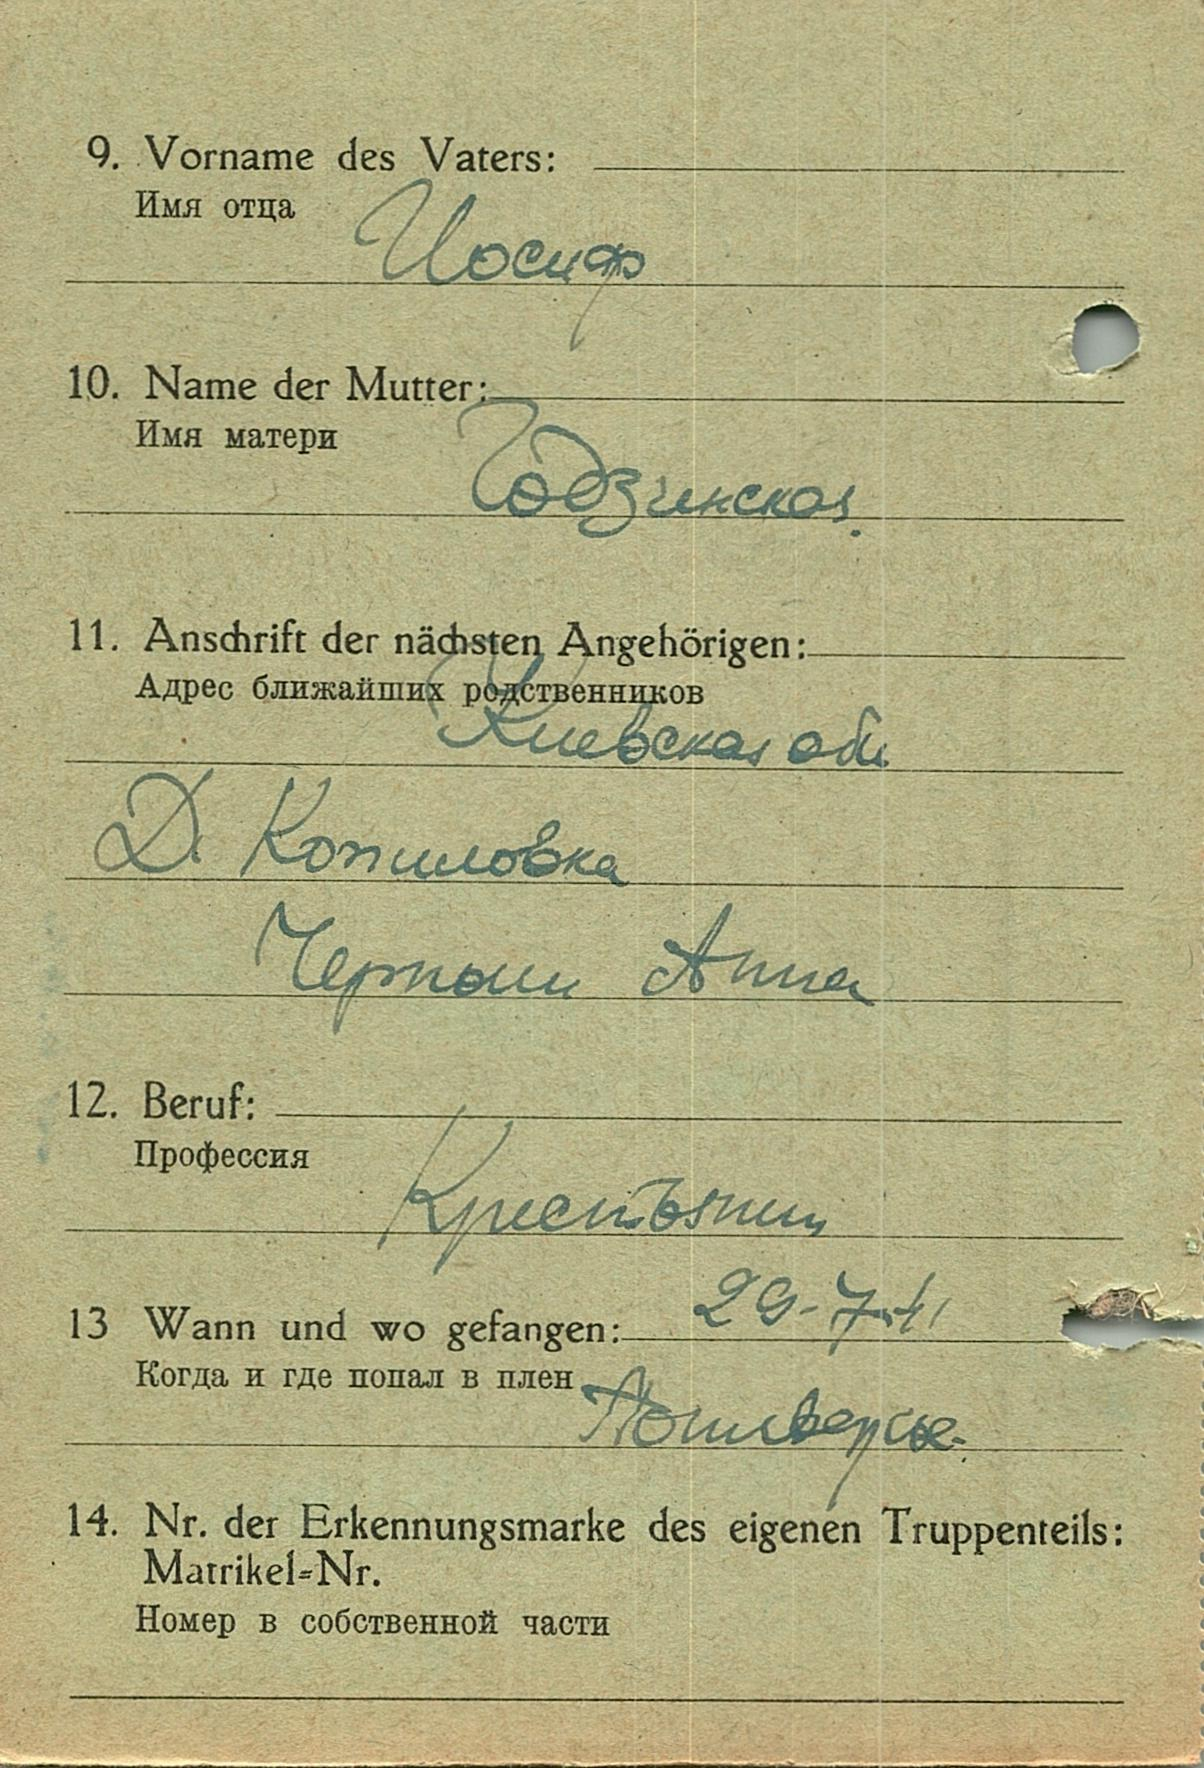 9. Vorname des Vaters:
Имя отца
Иосиф
10. Name der Mutter:
Имя матери
Годзинская.
11. Anschrift der nächsten Angehörigen:
Адрес ближайших родственников
Киевская обл
Д. Копиловка
Анна
12. Beruf:
Профессия
Крестьянин
13 Wann und wo gefangen: 29-7-41
Когда и где попал в плен
14. Nr. der Erkennungsmarke des eigenen Truppenteils:
Matrikel-Nr.
Номер в собственной части